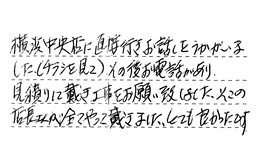 横浜中央店に直接行きお話しをうかがいま
した(チラシを見て)その後お電話があり
見積りに戴き工事をお願い致しました、その
店長さんが全てやって戴きました、とても良かったです